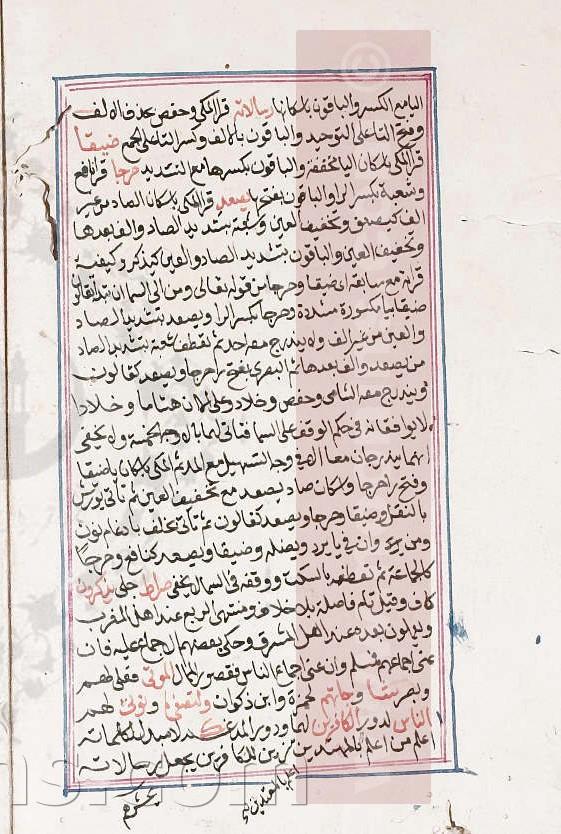 اليا مع الكسر والباقون باسكانها رسالاته قرا المكي وحفص بحذف الالف
وفتح التا على التوحيد والباقون بالالف وكسر التا على الجمع ضيقا
قرا المكي باسكان اليا مخففة والباقون بكسرها مع التشديد حرجا قرا نافع
وشعبة بكسر الرا والباقون بفتحها يصعد قرا المكي باسكان الصاد من غير
الف كيصعق وتخفيف العين وشعبة بتشديد الصاد والف بعدها
وتخفيف العين والباقون بتشديد الصاد والعين كيذكر وكيفية
قراته مع سابقه اي ضيقا وحرجا من قوله تعالى ومن الى السما ان تبدا لقالون
ضيقا بيا مكسورة مشددة وحرجا بكسر الرا ويصعد بتشديد الصاد
والعين من غير الف ولا يندرج معه احد ثم تعطف شعبة بتشديد الصاد
من يصعد والف بعدها ثم البصري بفتح را حرجا ويصعد كقالون
ويندرج معه الشامي وحفص وخلاد وعلى الا ان هشاما وخلادا
لا يوافقانه في حكم الوقف على السما فتاتي لهما باوجه الخمسة ولا يخفى
انهما يندرجان معا في وجه التسهيل مع المد ثم المكي باسكان يا ضيقا
وفتح را حرجا واسكان صاد يصعد مع تخفيف العين ثم تاتي بورش
بالنقل وضيقا وحرجا ويصعد كقالون ثم تاتي بخلف بادغام نون
ومن يرد وان في يا يرد ويضله وضيقا ويصعد كنافع وحرجا
كالجماعة ثم تعطفه بالسكت ووقفه في السما لا يخفى صراط جلي يذكرون
كاف وقيل تام فاصلة بلا خلاف ومنتهى الربع عند اهل المغرب
ويعملون بعده عند اهل المشرق وحكى بعضهم الاجماع عليه فان
عنى اجماعهم فمسلم وان عنى اجماع الناس فقصور الممال الموتى فعلى لهم
وبصر شا و جاتهم لحمزة وابن ذكوان ولتصغى و نؤتى لهم
الناس لدور الكافرين لهما ودور المدغم
اعلم من اعلم بالمهتدين زين للكافرين يجعل رسالاته